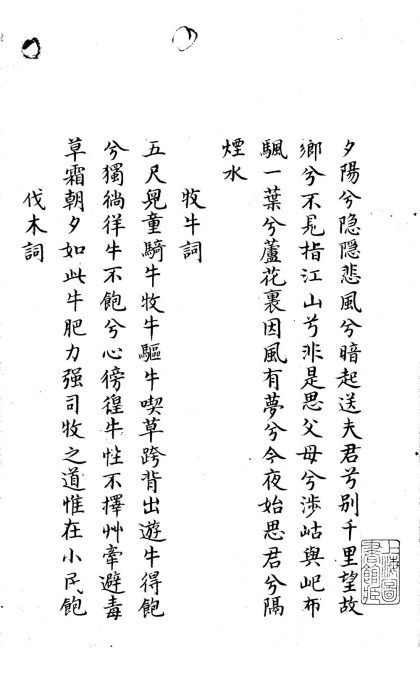 夕陽兮隐隱悲風兮暗起送夫君兮别千里望故
鄉兮不見指江山兮非是思父母兮涉岵與屺布
颿一葉兮蘆花裏因風有夢兮今夜始思君兮隔
煙水
牧牛詞
五尺兒童騎牛牧牛驅牛喫草跨背出遊牛得飽
兮獨徜徉牛不飽兮心徬徨牛性不擇艸牽避毒
草霜朝夕如此牛肥力强司牧之道惟在小民飽
伐木詞
上海圖書館藏